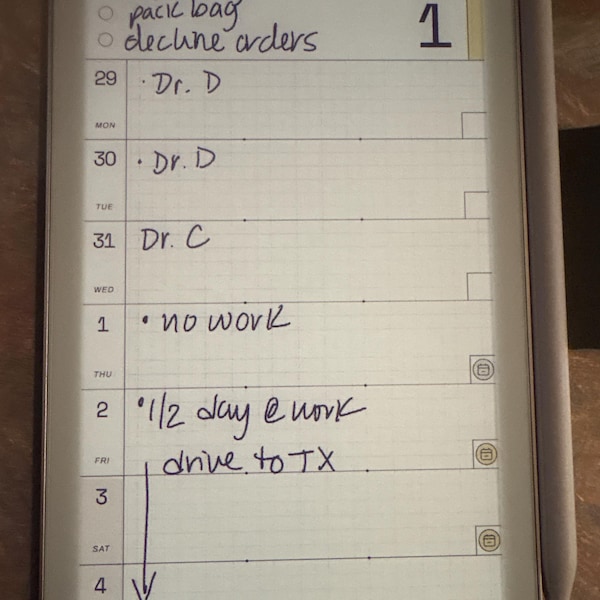 pack bag
decline orders
1
29
· Dr. D
MON
30
· Dr. D
TUE
31
Dr. C
WED
1
· no work
THU
2
· 1/2 day @ work
FRI
drive to TX
3
SAT
4